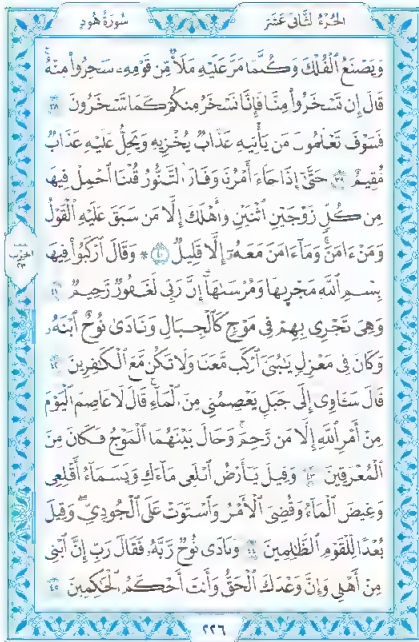 الجزء الثاني عشر
سورة هود
وَيَصْنَعُ ٱلْفُلْكَ وَكُلَّمَا مَرَّ عَلَيْهِ مَلَأٌ مِّن قَوْمِهِۦ سَخِرُوا۟ مِنْهُ ۚ
قَالَ إِن تَسْخَرُوا۟ مِنَّا فَإِنَّا نَسْخَرُ مِنكُمْ كَمَا تَسْخَرُونَ ٣٨
فَسَوْفَ تَعْلَمُونَ مَن يَأْتِيهِ عَذَابٌ يُخْزِيهِ وَيَحِلُّ عَلَيْهِ عَذَابٌ
مُّقِيمٌ ٣٩ حَتَّىٰٓ إِذَا جَآءَ أَمْرُنَا وَفَارَ ٱلتَّنُّورُ قُلْنَا ٱحْمِلْ فِيهَا
مِن كُلٍّ زَوْجَيْنِ ٱثْنَيْنِ وَأَهْلَكَ إِلَّا مَن سَبَقَ عَلَيْهِ ٱلْقَوْلُ
وَمَنْ ءَامَنَ ۚ وَمَآ ءَامَنَ مَعَهُۥٓ إِلَّا قَلِيلٌ ٤٠ ۞ وَقَالَ ٱرْكَبُوا۟ فِيهَا
بِسْمِ ٱللَّهِ مَجْر۪ىٰهَا وَمُرْسَىٰهَآ ۚ إِنَّ رَبِّى لَغَفُورٌ رَّحِيمٌ ٤١
وَهِىَ تَجْرِى بِهِمْ فِى مَوْجٍ كَٱلْجِبَالِ وَنَادَىٰ نُوحٌ ٱبْنَهُۥ
وَكَانَ فِى مَعْزِلٍ يَٰبُنَىَّ ٱرْكَب مَّعَنَا وَلَا تَكُن مَّعَ ٱلْكَٰفِرِينَ ٤٢
قَالَ سَـَٔاوِىٓ إِلَىٰ جَبَلٍ يَعْصِمُنِى مِنَ ٱلْمَآءِ ۚ قَالَ لَا عَاصِمَ ٱلْيَوْمَ
مِنْ أَمْرِ ٱللَّهِ إِلَّا مَن رَّحِمَ ۚ وَحَالَ بَيْنَهُمَا ٱلْمَوْجُ فَكَانَ مِنَ
ٱلْمُغْرَقِينَ ٤٣ وَقِيلَ يَٰٓأَرْضُ ٱبْلَعِى مَآءَكِ وَيَٰسَمَآءُ أَقْلِعِى
وَغِيضَ ٱلْمَآءُ وَقُضِىَ ٱلْأَمْرُ وَٱسْتَوَتْ عَلَى ٱلْجُودِىِّ ۖ وَقِيلَ
بُعْدًا لِّلْقَوْمِ ٱلظَّٰلِمِينَ ٤٤ وَنَادَىٰ نُوحٌ رَّبَّهُۥ فَقَالَ رَبِّ إِنَّ ٱبْنِى
مِنْ أَهْلِى وَإِنَّ وَعْدَكَ ٱلْحَقُّ وَأَنتَ أَحْكَمُ ٱلْحَٰكِمِينَ ٤٥
٢٢٦